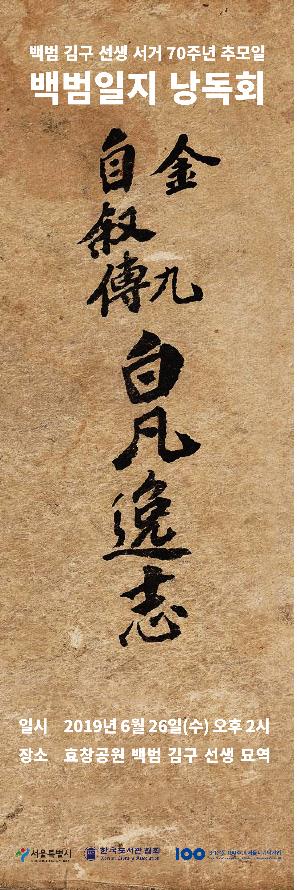 백범 김구 선생 서거 70주년 추모일
백범일지 낭독회
金九
自叙傳
白凡逸志
일시 2019년 6월 26일(수) 오후 2시
장소 효창공원 백범 김구 선생 묘역
서울특별시
한국도서관협회
100